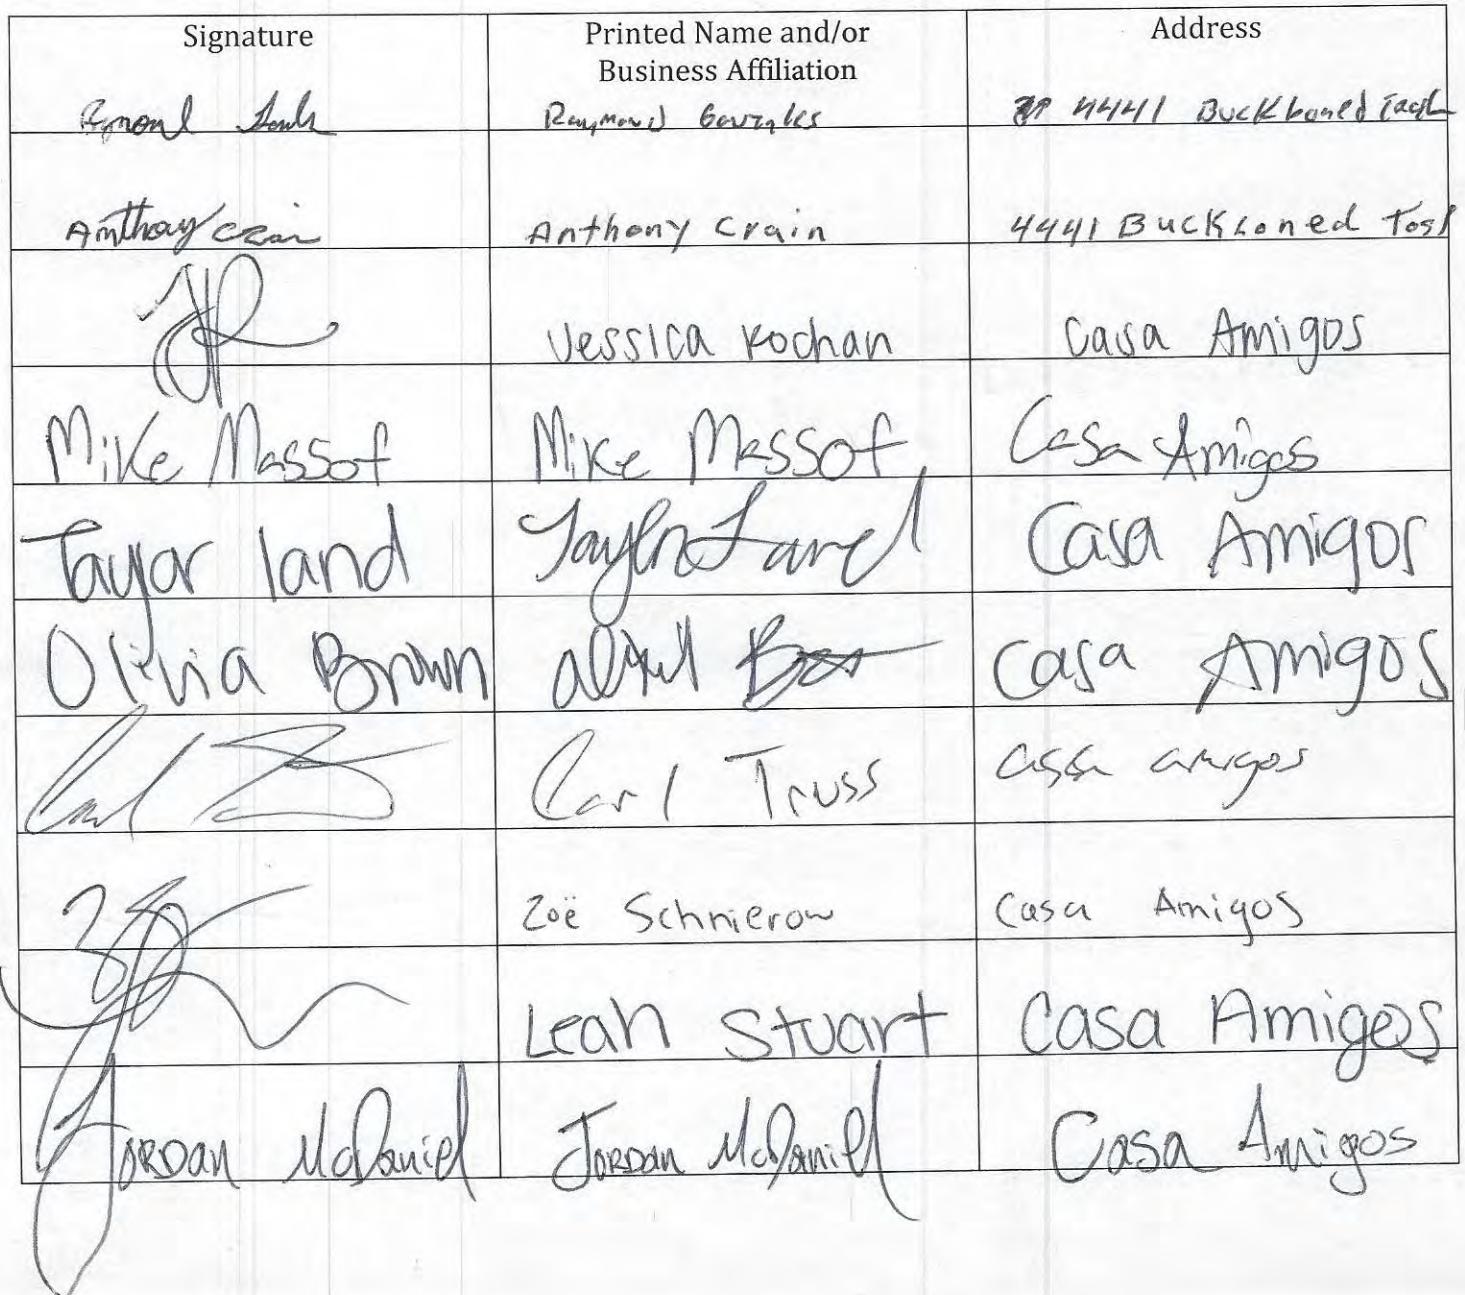 Signature Printed Name and/or Address
Business Affiliation
Raymond Gonzales 4441
Anthony Crain Anthony Crain 4441 Buckboned
Jessica Kochan Casa Amigos
Mike Massof Mike Massof Casa Amigos
Taylor land Taylor Land Casa Amigos
Olivia Brown Casa Amigos
Carl Truss casa amigos
Zoë Schnierow Casa Amigos
Leah Stuart Casa Amigos
Jordan McDaniel Jordan McDaniel Casa Amigos